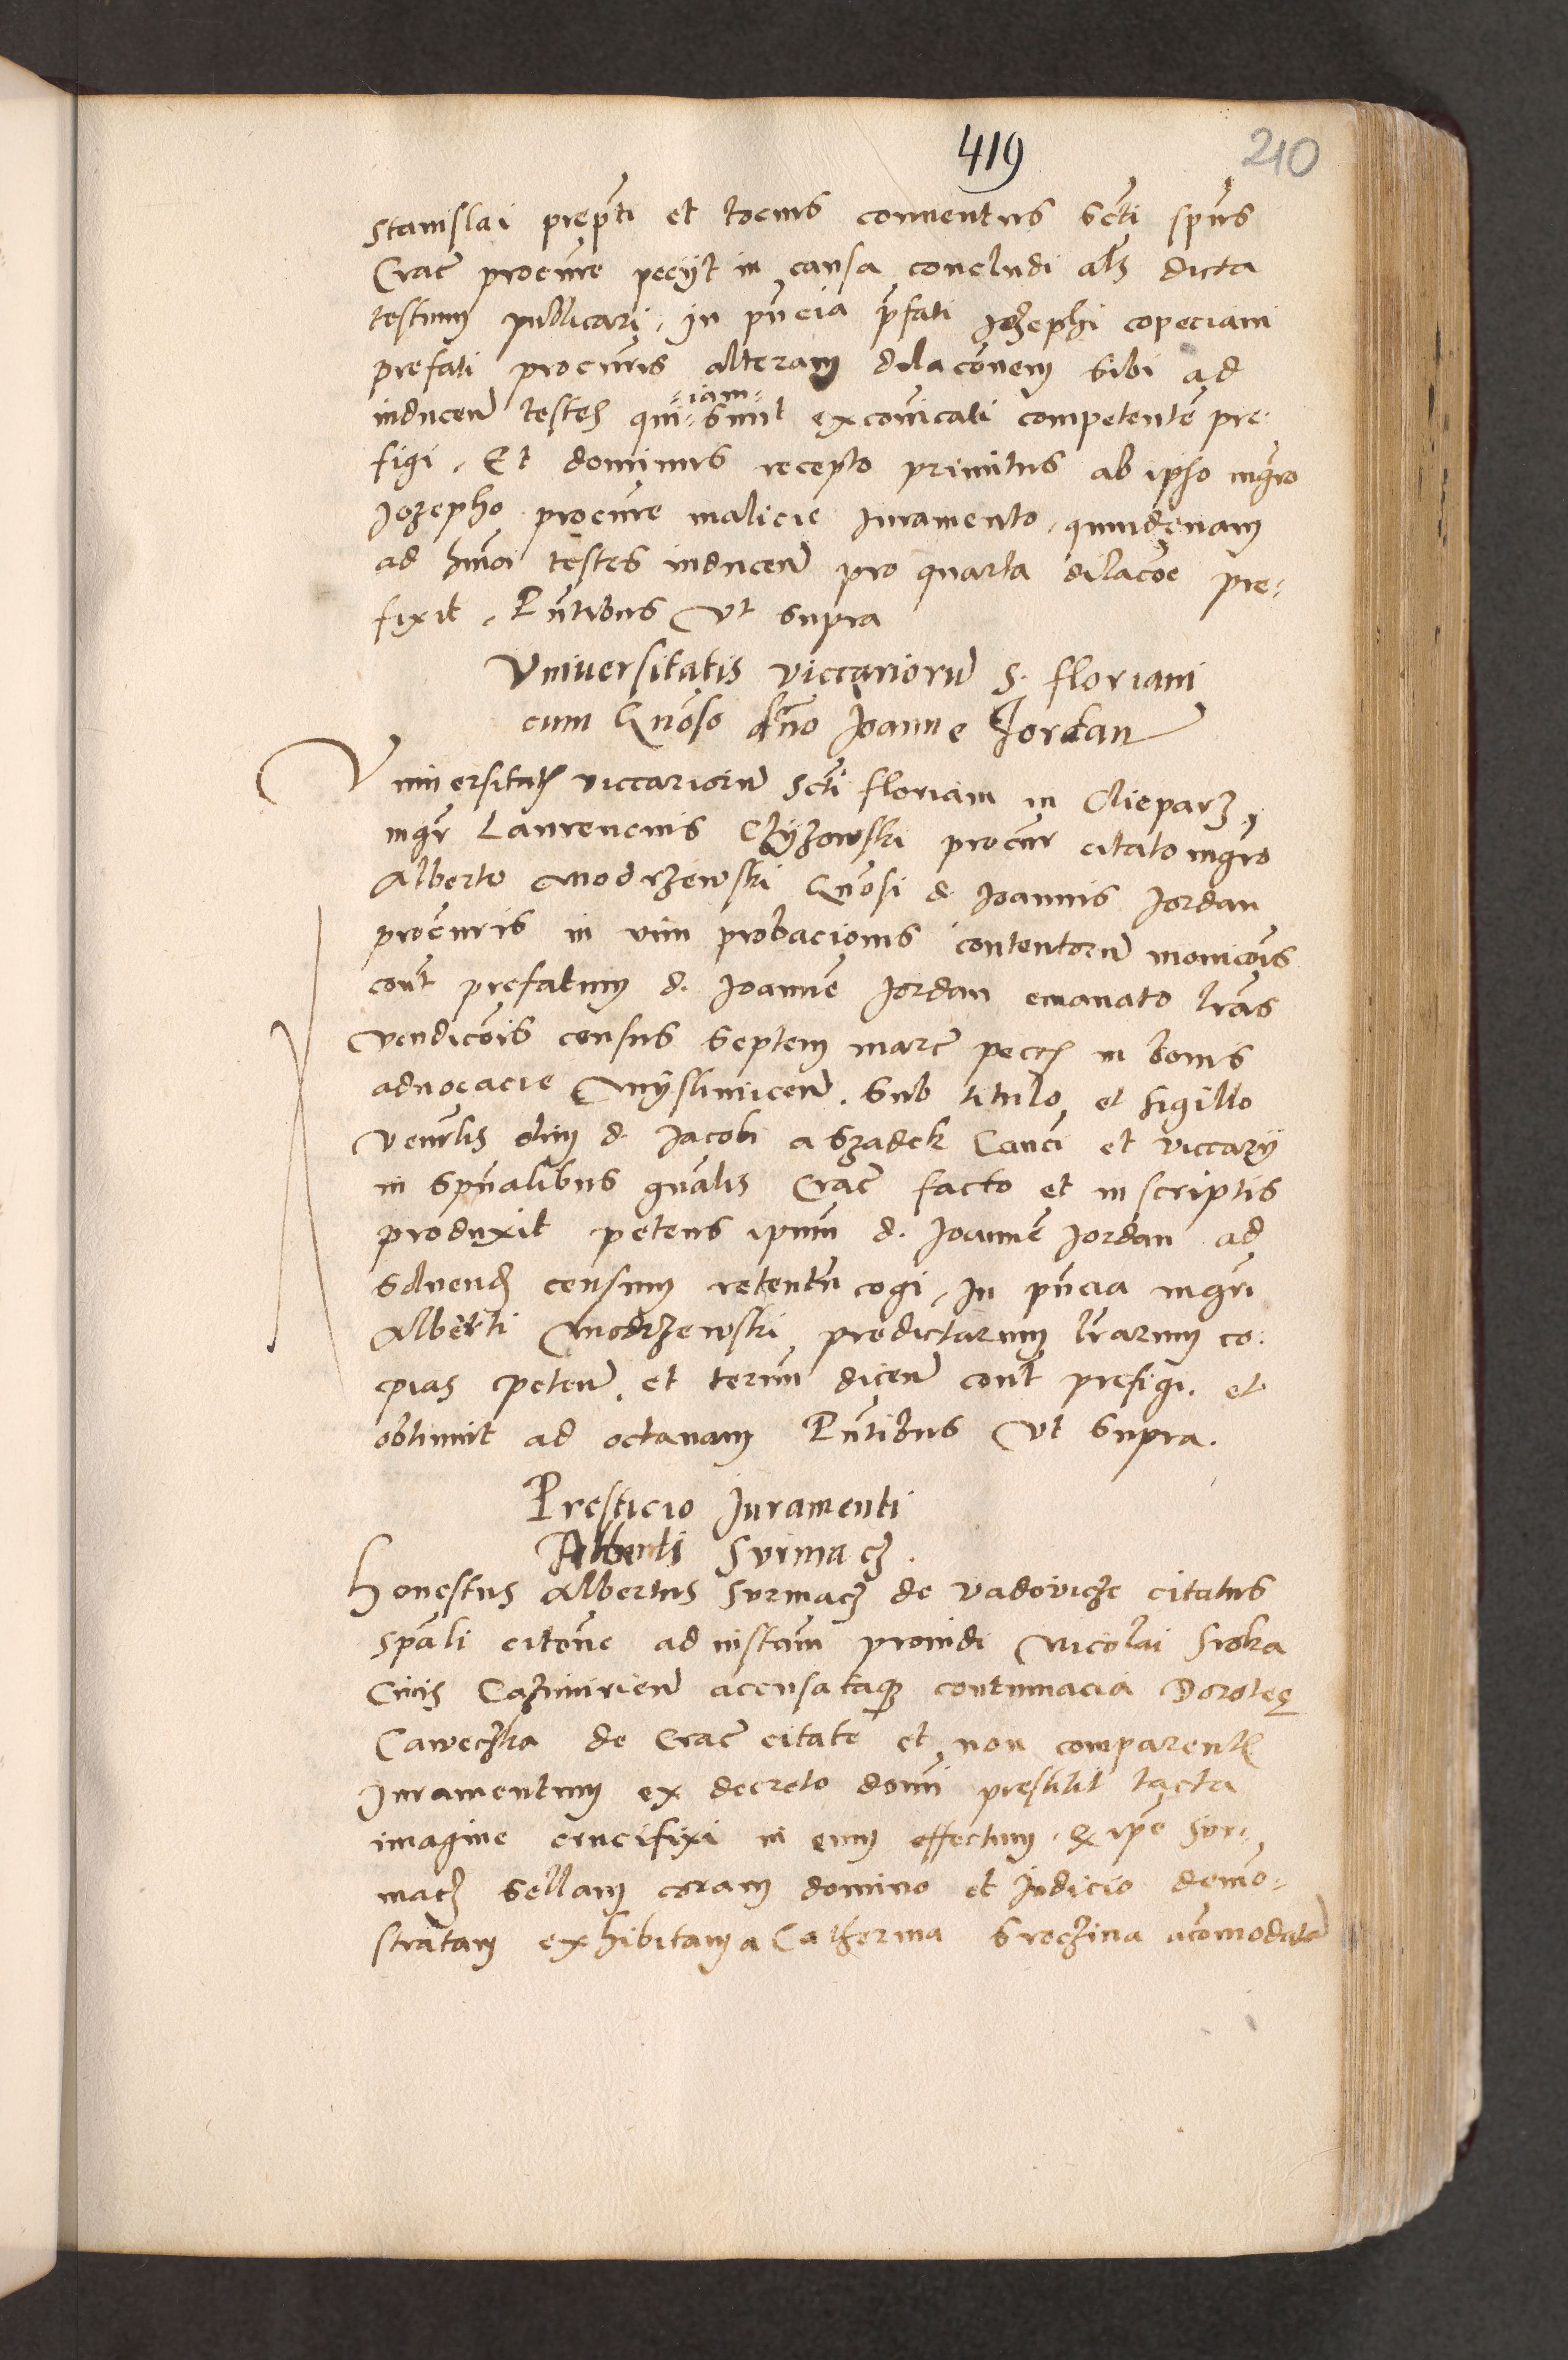 419
210
Stanislai prepti et tocius conuentus Scti spus
Crac procure peciit in causa concludi als dicta
testium publicari, In pncia pfati Jozephi copeciani
prefati procuris alteram dilaconem sibi ad
inducen testes qui =iam= sunt excoicati competente pre-
figi. Et dominus recepto primitus ab ipso mgro
Jozepho procure malicie iuramento, quindenam
ad hmoi testes inducen pro quarta dilacoe pre-
fixit. Pntibus Vt supra
Vniuersitatis viccariorum S. Floriani
cum Gnoso dno Joanne Jordan
Vniuersitatis viccariorum Scti Floriani in Clieparz,
mgr Laurencius Czyzowski procur citato mgro
Alberto Modrzewski Gnosi d. Joannis Jordan
procuris in vim probacionis contentorum monicois
cont prefatum d. Joanne Jordan emanato lras
vendicois census septem marc pecc in bonis
aduocacie Myslimicen. Sub titulo et sigillo
Venerlis olim d. Jacobi a Szadek Canci et viccarij
in spualibus gnalis Crac facto et in scriptis
produxit petens ipum d. Joanne Jordan ad
soluend censum retentum cogi, In pncia mgri
Alberti Modrzewski predictarum lrarum co-
pias peten. et termin dicen cont prefigi. et
obtinuit ad octauam Pntibus Vt Supra.
Presticio Juramenti
Alberti Surmacz.
Honestus Albertus Surmacz de Vadovicze citatus
spali citone ad instam prouidi Nicolai Sroka
Ciuis Casimirien accusataqz contumacia Dorotee
Caweczka de Crac citate et non comparentis
Juramentum ex decreto domi prestitit tacta
imagine crucifixi in eum effectum. Qz ipe Sur-
macz sellam coram domino et Judicio demo-
stratam exhibitam a Catherina Sroczina acomodatam